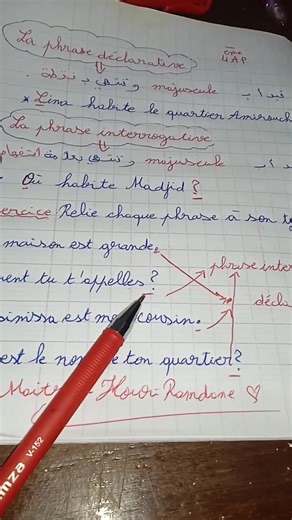 La phrase déclarative
ème
4 AP
تبدأ بـ majuscule و تنتهي بـ نقطة
* Lina habite le quartier Amirouch
La phrase interrogative
majuscule و تنتهي بـ
Où habite Madjid ?
ercice : Relie chaque phrase à son ty
maison est grande.
phrase inter
ment tu t'appelles ?
décla
est mon cousin.
est le nom de ton quartier ?
Houri Ramdane ♡
mza V-152